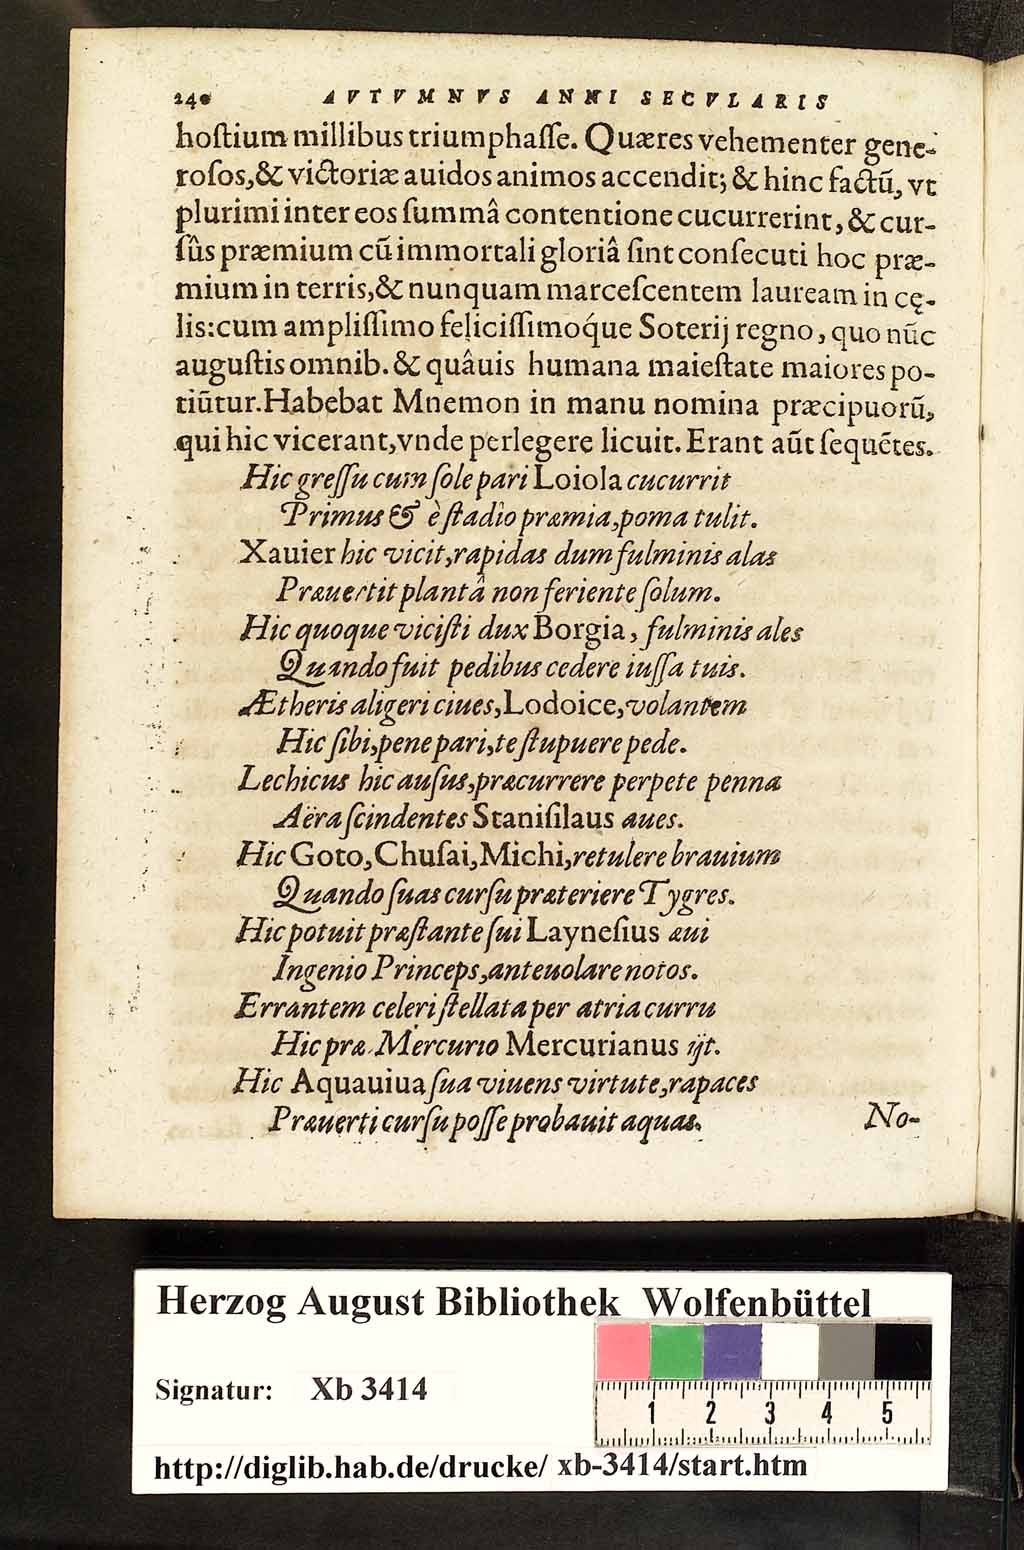 240 AVTVMNVS ANNI SECVLARIS
hoſtium millibus triumphaſſe. Quæres vehementer gene-
roſos,& victoriæ auidos animos accendit; & hinc factū, vt
plurimi inter eos ſummâ contentione cucurrerint, & cur-
ſûs præmium cū immortali gloriâ ſint conſecuti hoc præ-
mium in terris,& nunquam marceſcentem lauream in cę-
lis:cum ampliſſimo feliciſſimoq́ue Soterij regno, quo nūc
auguſtis omnib. & quâuis humana maieſtate maiores po-
tiūtur.Habebat Mnemon in manu nomina præcipuorū,
qui hic vicerant,vnde perlegere licuit. Erant aūt ſequētes.
Hic greſſu cum ſole pari Loiola cucurrit
Primus & è ſtadìo præmia,poma tulit.
Xauier hic vicit,rapidas dum fulminis alas
Præuertit plantâ non feriente ſolum.
Hic quoque viciſti dux Borgia, fulminis ales
Quando fuit pedibus cedere iuſſa tuis.
Ætheris aligeri ciues,Lodoice,volantem
Hic ſibi,pene pari,te ſtupuere pede.
Lechicus hic auſus,præcurrere perpete penna
Aëra ſcindentes Staniſilaus aues.
Hic Goto,Chuſai,Michi,retulere brauium
Quando ſuas curſu præteriere Tygres.
Hic potuit præſtante ſui Layneſius æui
Ingenio Princeps,anteuolare notos.
Errantem celeri ſtellata per atria curru
Hic præ Mercurio Mercurianus ijt.
Hic Aquauiua ſua viuens virtute,rapaces
Præuerti curſu poſſe probauit aquas.
No-
Herzog August Bibliothek Wolfenbüttel
Signatur: Xb 3414
1 2 3 4 5
http://diglib.hab.de/drucke/ xb-3414/start.htm